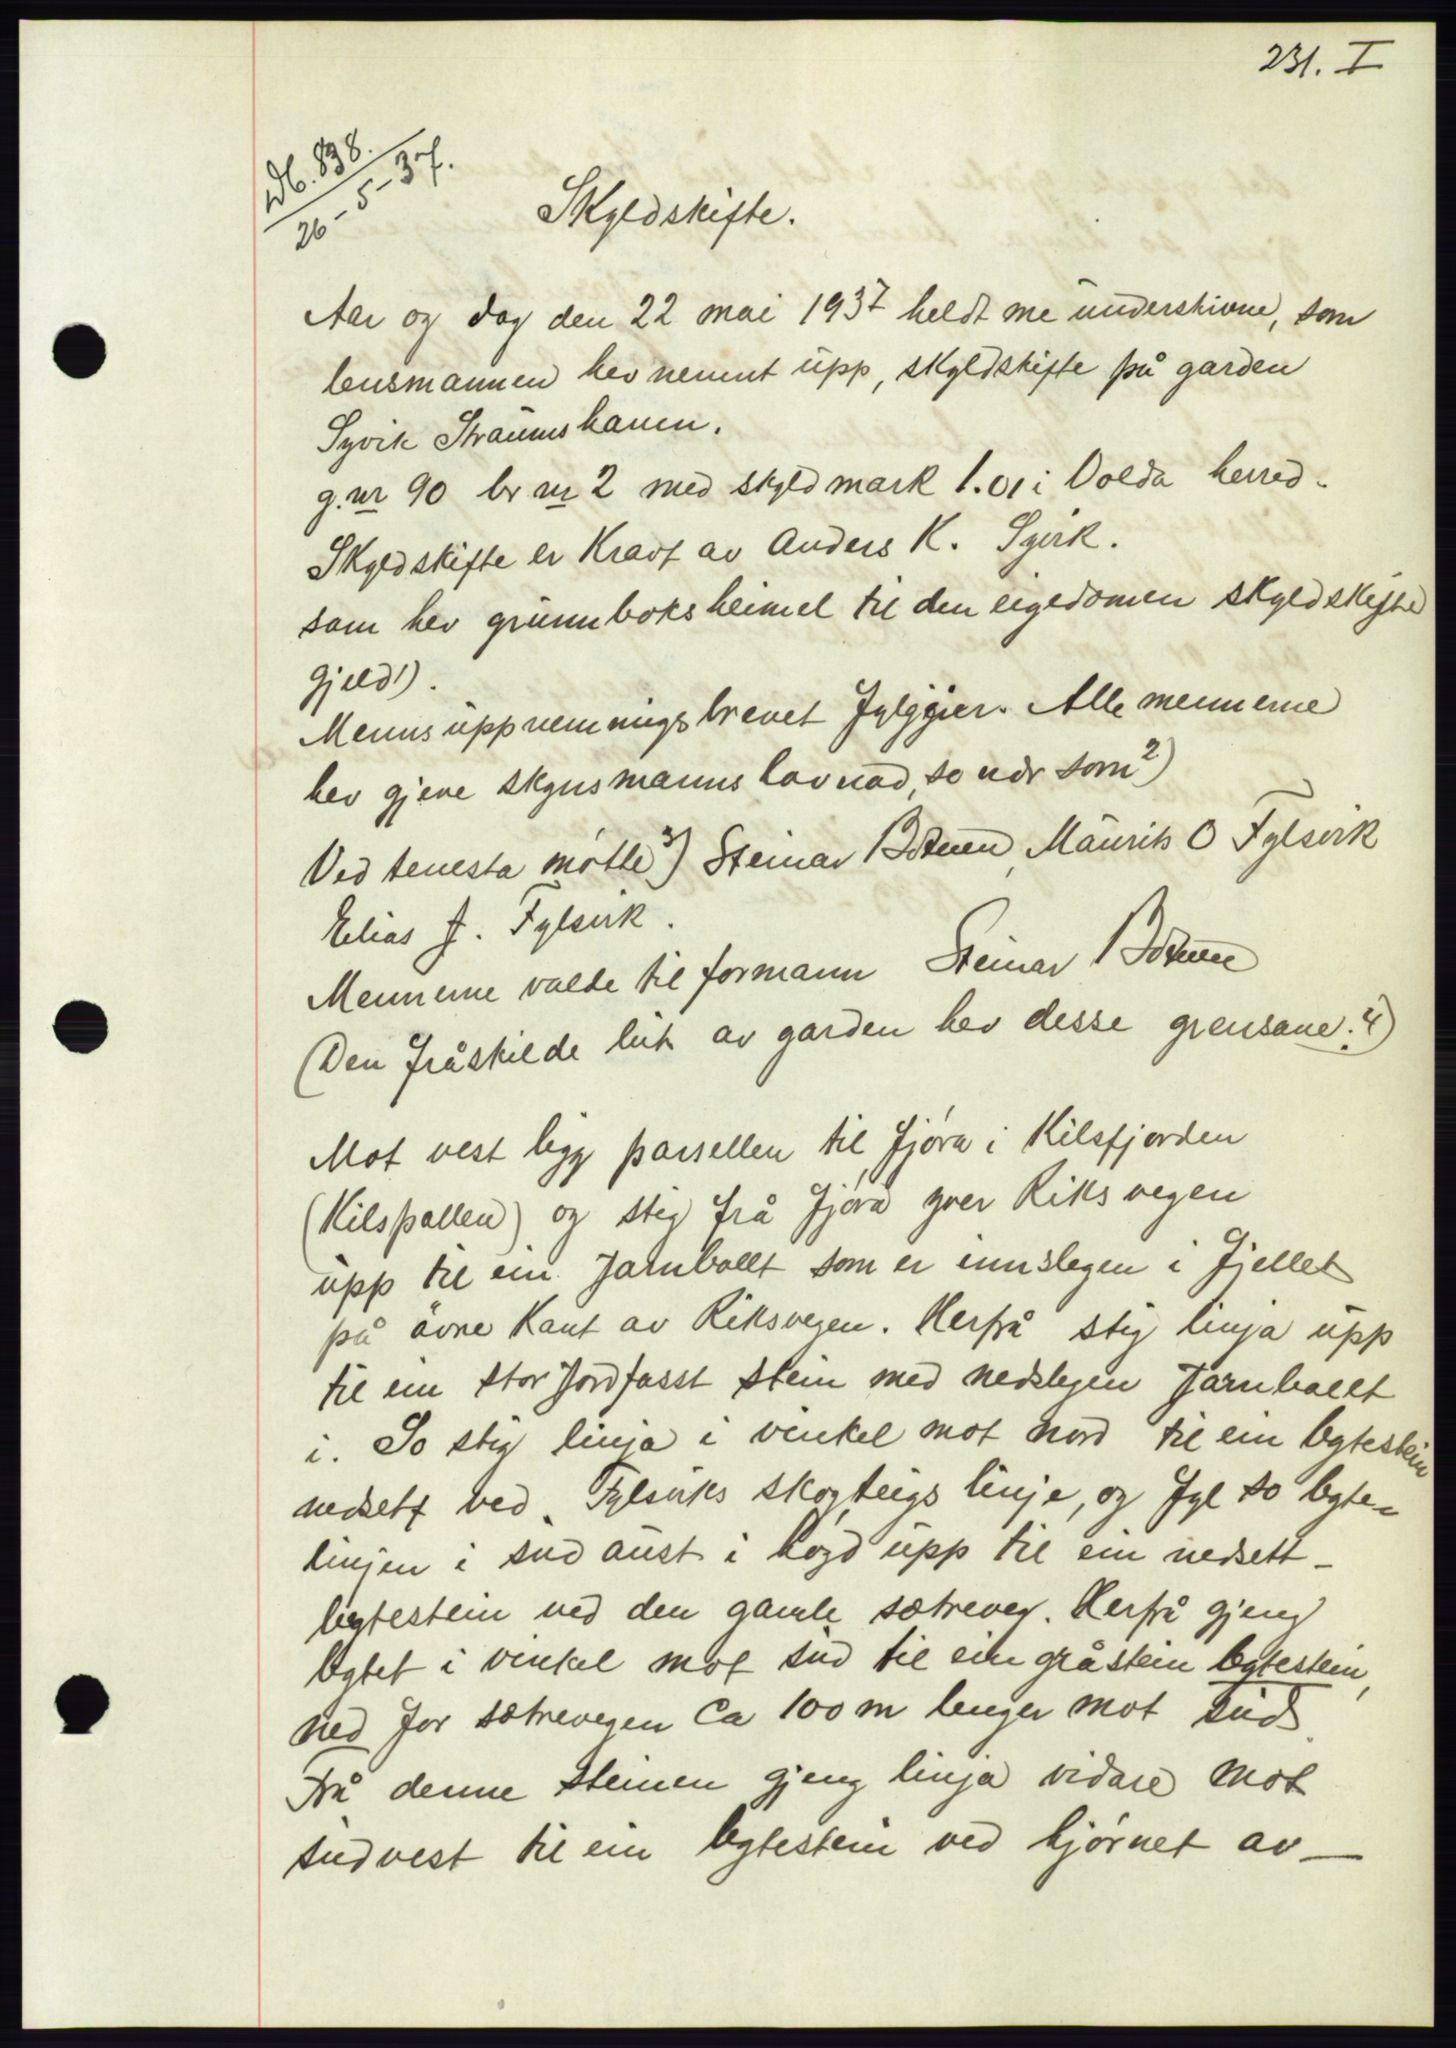 231. I
Db. 838.
26-5-37.
Skyldskifte.
Aar og dag den 22 mai 1937 heldt me underskivne, som
lensmannen hev nemnt upp, skyldskifte på garden
Syvik Straumshamn.
g.nr 90 br nr 2 med skyldmark 1.01 i Volda herred.
Skyldskifte er kravt av Anders K. Syvik.
som hev grunnboksheimel til den eigedomen skyldskifte
gjeld 1).
Mennsuppnemningsbrevet fylgjer. Alle mennerne
hev gjeve skynsmanns lovnad, so nær som 2)
Ved tenesta møtte 3) Steinar Botnen, Maurits O Fylsvik
Elias J. Fylsvik.
Mennerne valde til formann Steinar Botnen
(Den fråskilde lut av garden hev desse grensane: 4)
Mot vest ligg parsellen til fjøra i Kilsfjorden
(Kilspallen) og stig frå fjøra yver Riksvegen
upp til ein Jarnbollt som er innslegen i fjellet
på övre kant av Riksvegen. Herfrå stig linja upp
til ein stor jordfasst stein med nedslegen Jarnbollt
i. So stig linja i vinkel mot nord til ein bytestein
nedsett ved Fylsviks skogteigs linje, og fyl so byte-
linjen i sud aust i høgd upp til ein nedsett-
bytestein ved den gamle sætreveg. Herfrå gjeng
bytet i vinkel mot sud til ein gråstein bytestein,
ned for sætrevegen ca 100 m lenger mot sud.
Frå denne steinen gjeng linja vidare mot
sudvest til ein bytestein ved hjørnet av —